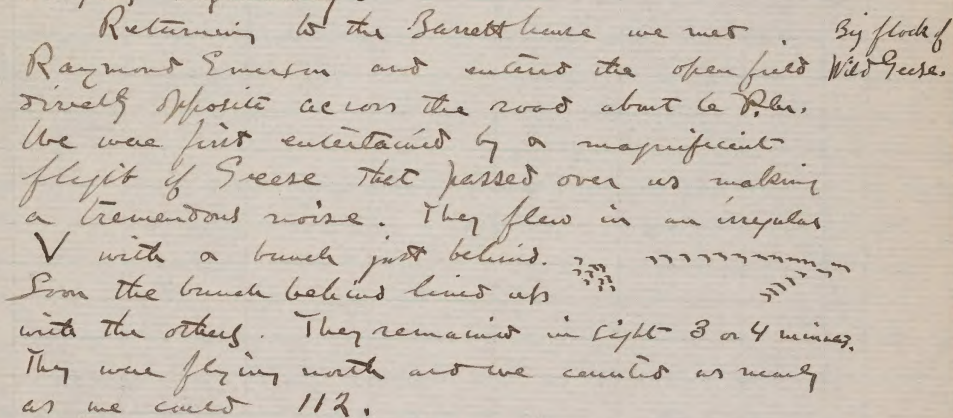 Returning to the Barrett house we met
Raymond Emerson and entered the open field
directly opposite across the road about 6 P.M.
We were first entertained by a magnificent
flight of Geese that passed over us making
a tremendous noise. They flew in an irregular
V with a bunch just behind.
Soon the bunch behind lined up
with the others. They remained in sight 3 or 4 minutes.
They were flying north and we counted as nearly
as we could 112.
Big flock of
Wild Geese.